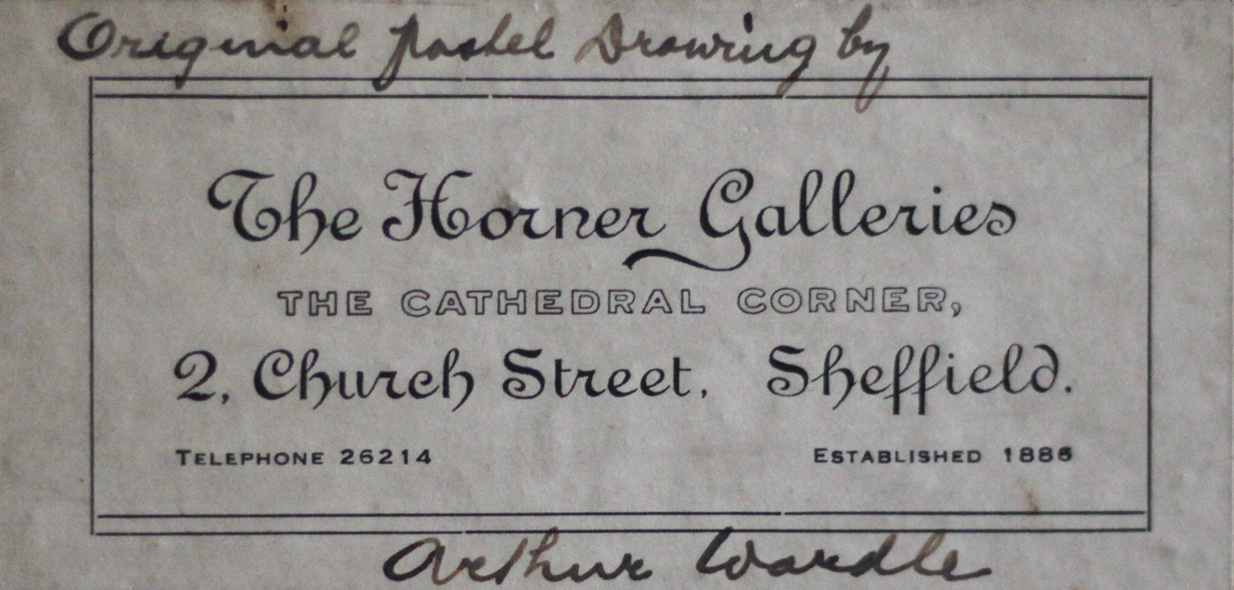 Original pastel Drawing by
The Horner Galleries
THE CATHEDRAL CORNER,
2, Church Street, Sheffield.
TELEPHONE 26214 ESTABLISHED 1886
Arthur Wardle